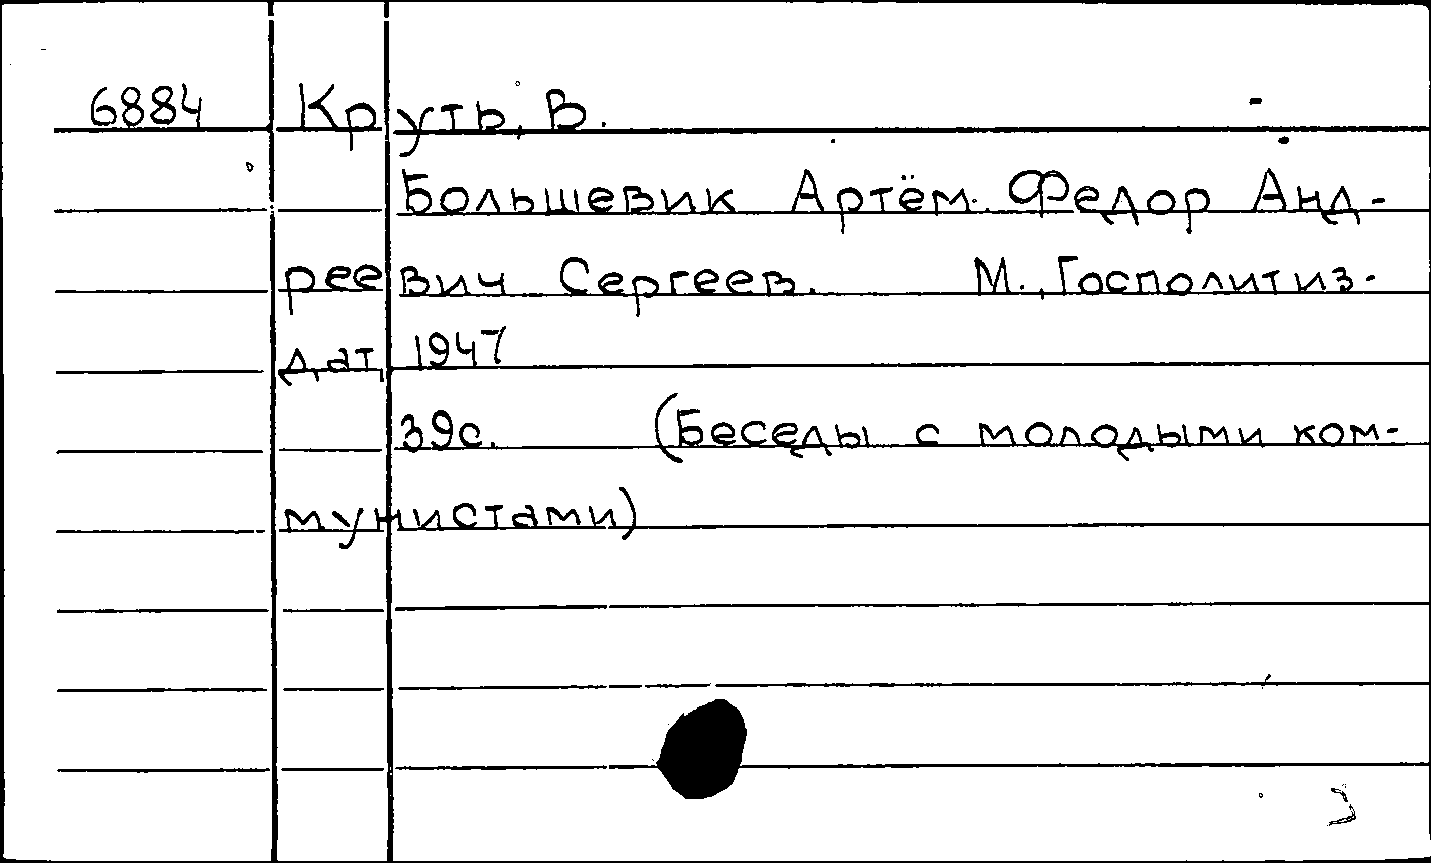 6884 Круть, В.
Большевик Артём. Федор Анд-
реевич Сергеев. М., Госполитиз-
дат, 1947
39с. (Беседы с молодыми ком-
мунистами)